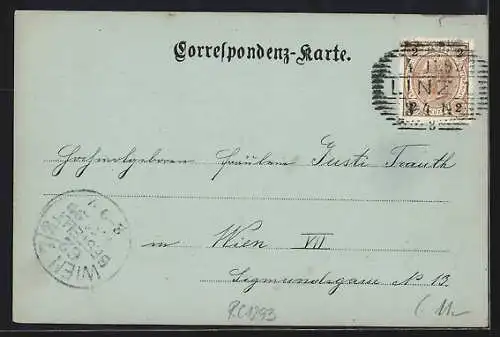 Correspondenz-Karte.
2 2
LINZ
2
Hochwolgeboren Fräulein Gusti Trauth
in Wien VII
WIEN
Sigmundsgasse No 13.
RC1793